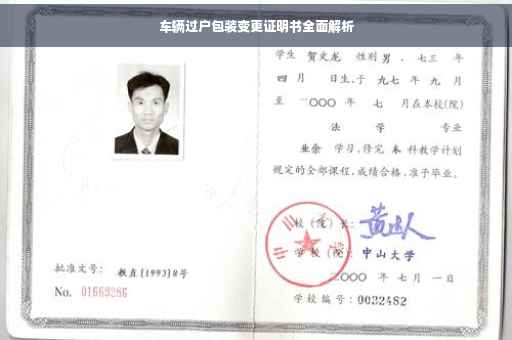 车辆过户包装变更证明书全面解析
学生 贺文龙 性别 男 、七三 年
四 月 日生,于 九七 年 九 月
至 二〇〇〇 年 七 月在本校(院)
法 学 专业
业余 学习,修完 本 科教学计划
规定的全部课程,成绩合格,准予毕业。
校(院)长:
学校(院): 中山大学
二〇〇〇 年 七 月 一 日
学校编号: 0032482
批准文号: 教直[1993]8号
No. 01663286